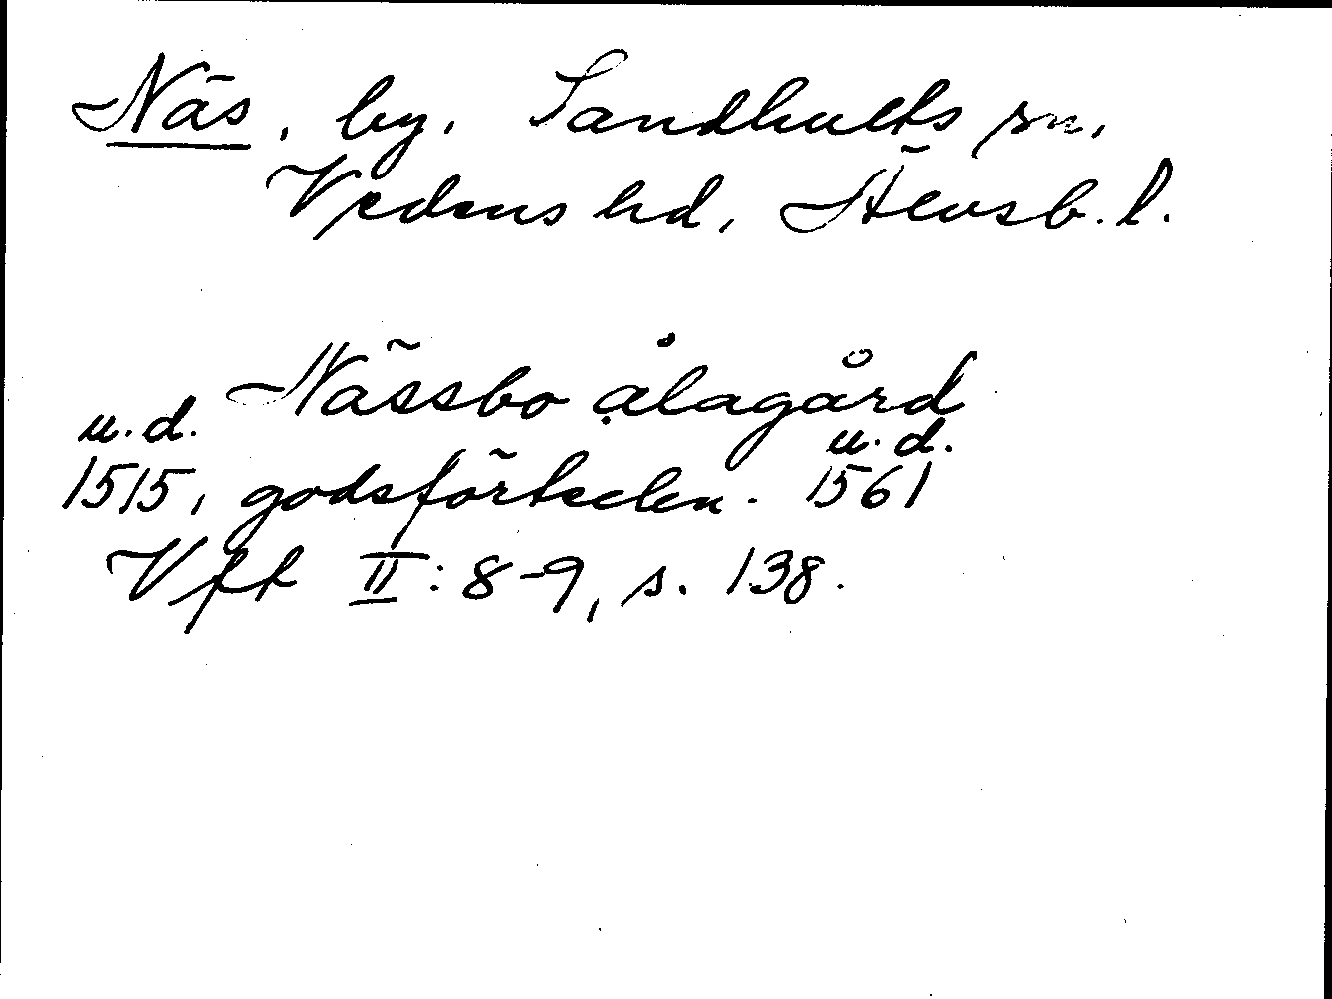 Näs, by, Sandhults sn,
Vedens hd, Älvsb. l.
Nässbo ålagård
u.d. u.d.
1515, godsförteckn. 1561
Vft II: 8-9, s. 138.